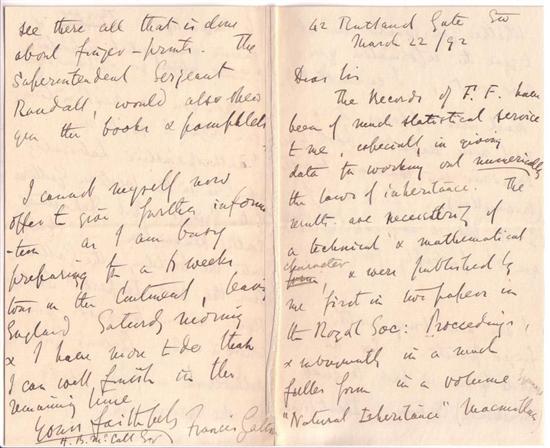 42 Rutland Gate SW
March 22/92
Dear Sir
The Records of F. F. have
been of much statistical service
to me, especially in giving
data for working out numerically
the laws of inheritance. The
results are necessarily of
a technical & mathematical
character
form, & were published by
me first in two papers in
the Royal Soc: Proceedings,
& subsequently in a much
fuller form in a volume
"Natural Inheritance" Macmillan
see there all that is done
about finger-prints. The
Superintendent Sergeant
Randall, would also shew
you the books & pamphlets
I cannot myself now
offer to give further informa
-tion as I am busy
preparing for a 6 weeks
tour on the Continent, leaving
England Saturday morning
& I have more to do than
I can well finish in the
remaining time
Yours faithfully
Francis Galton
H. B. McCall Esq